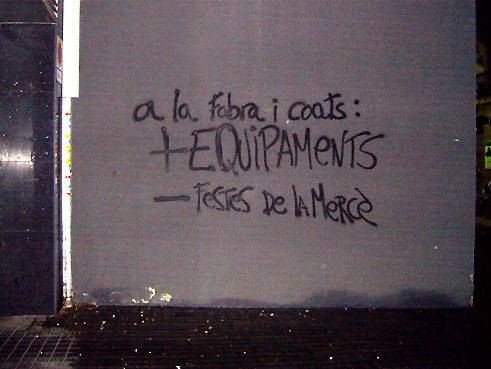 a la Fabra i coats:
+ EQUiPAMENTS
- FESTES DE LA MERCÈ